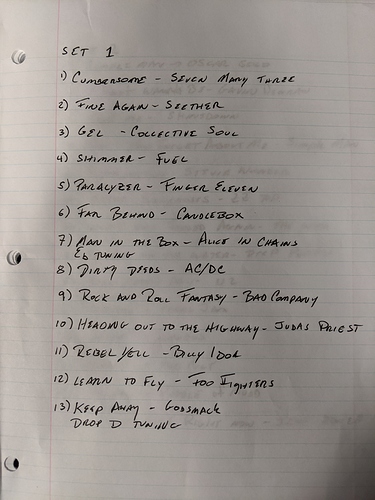 SET 1
1) CUMBERSOME - SEVEN MARY THREE
2) FINE AGAIN - SEETHER
3) GEL - COLLECTIVE SOUL
4) SHIMMER - FUEL
5) PARALYZER - FINGER ELEVEN
6) FAR BEHIND - CANDLEBOX
7) MAN IN THE BOX - ALICE IN CHAINS
Eb TUNING
8) DIRTY DEEDS - AC/DC
9) ROCK AND ROLL FANTASY - BAD COMPANY
10) HEADING OUT TO THE HIGHWAY - JUDAS PRIEST
11) REBEL YELL - BILLY IDOL
12) LEARN TO FLY - FOO FIGHTERS
13) KEEP AWAY - GODSMACK
DROP D TUNING